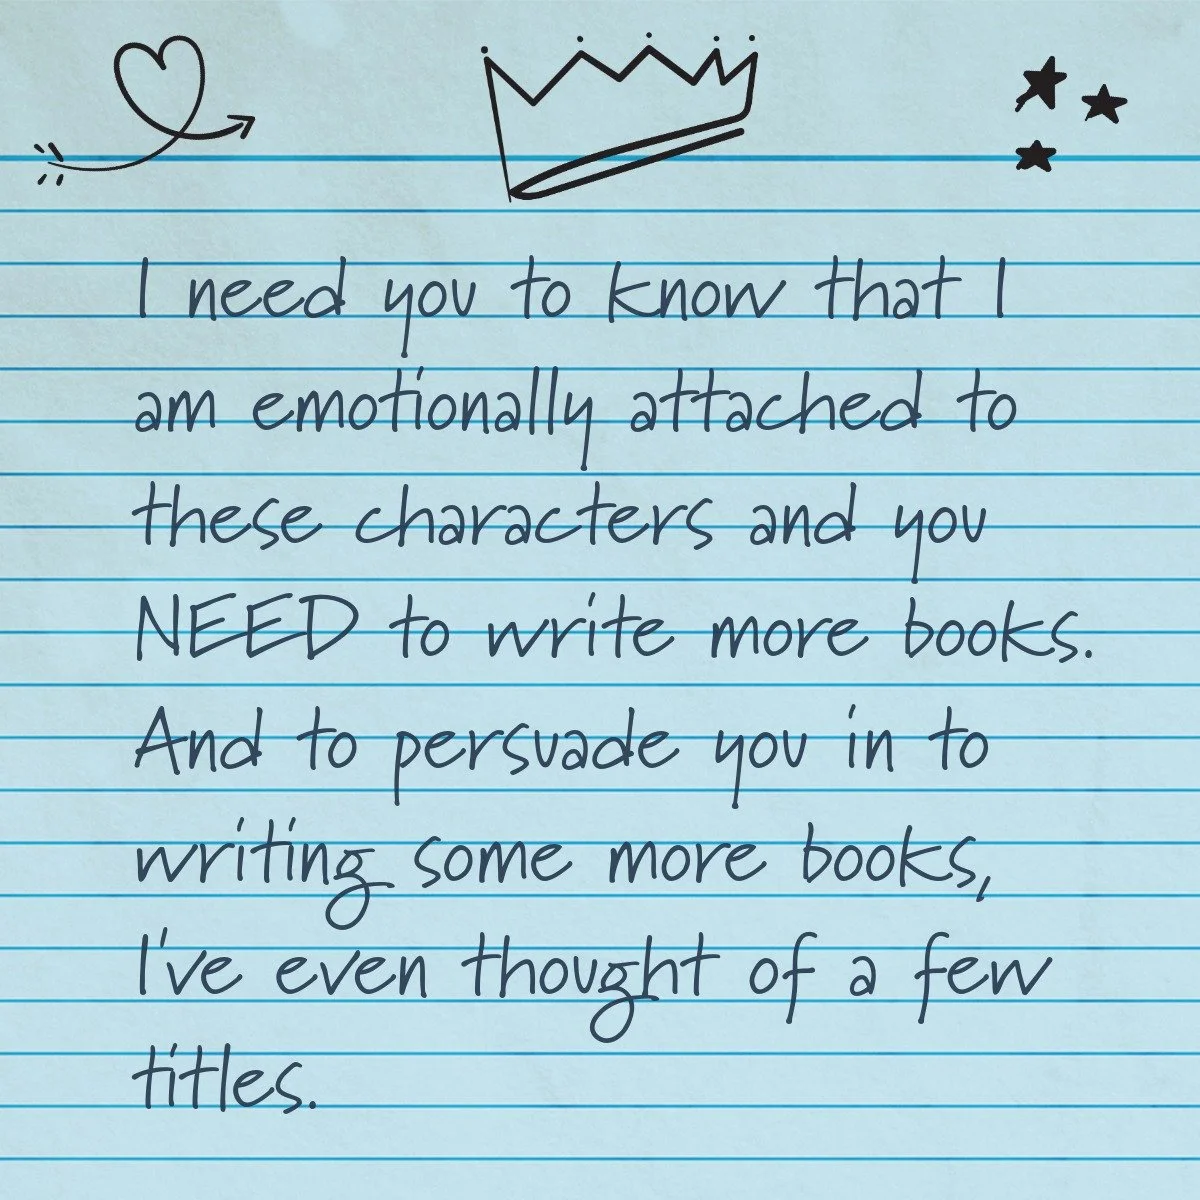 I need you to know that I
am emotionally attached to
these characters and you
NEED to write more books.
And to persuade you in to
writing some more books,
I've even thought of a few
titles.